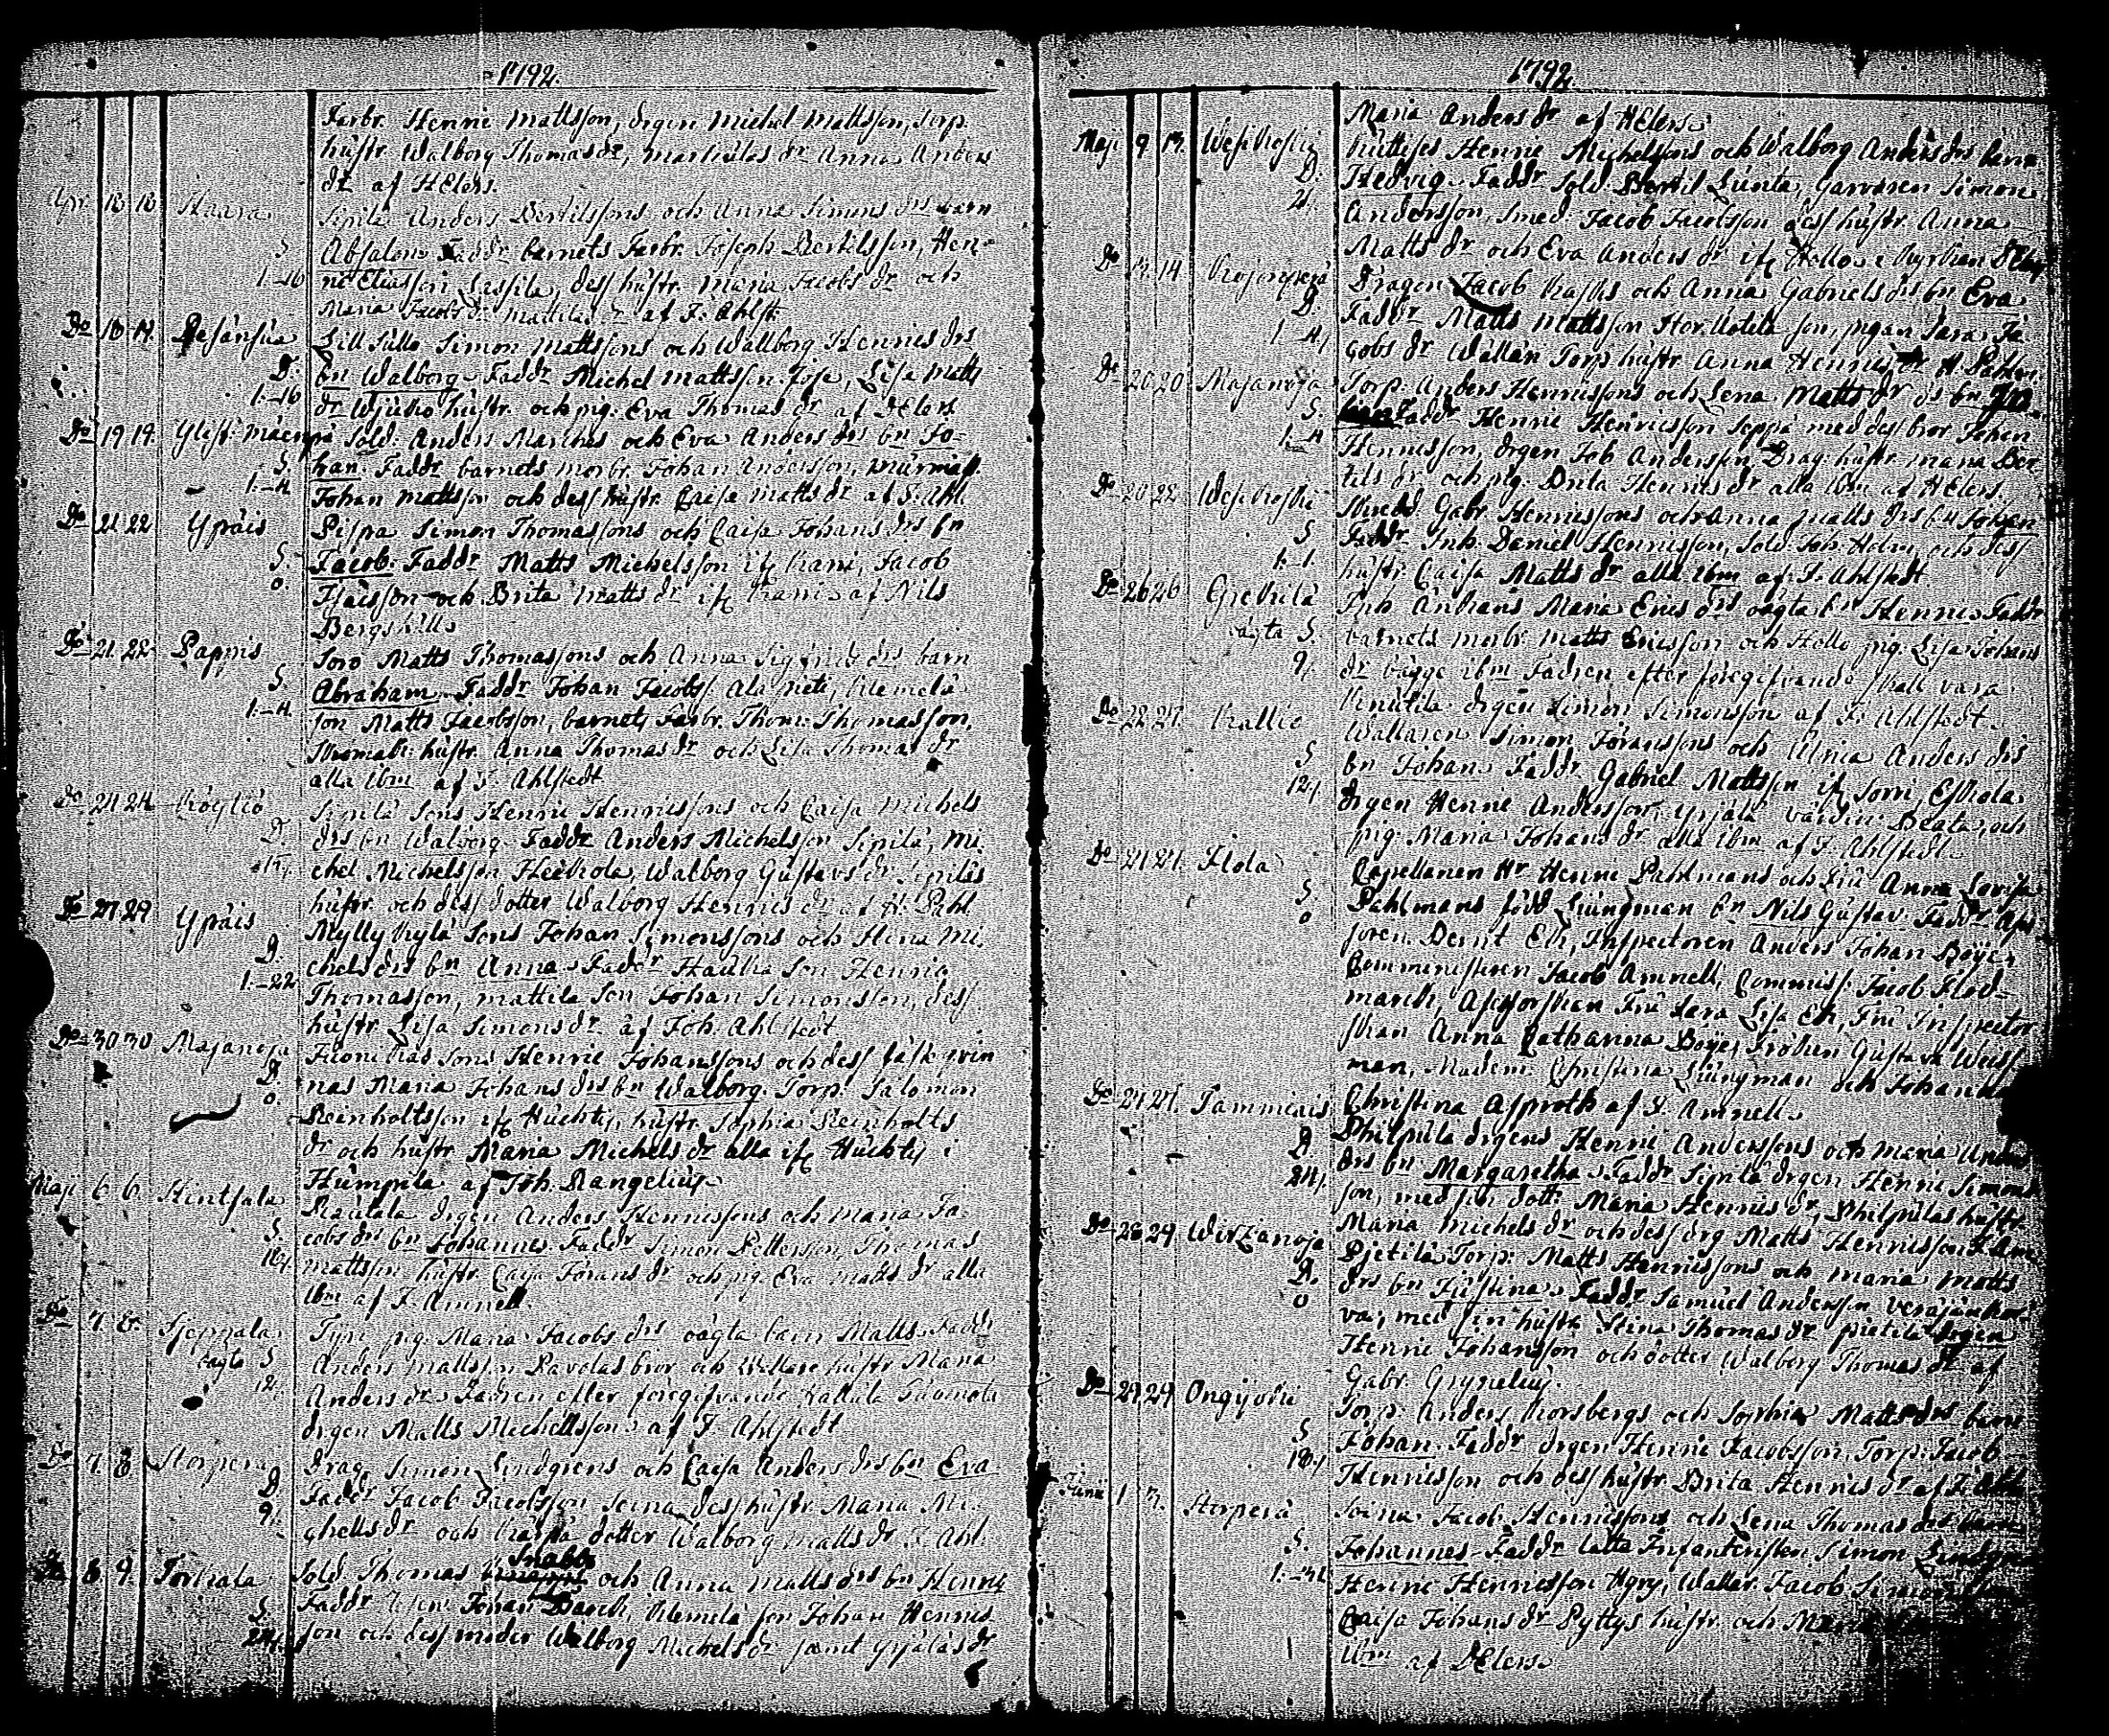 1792.
Farbr. Henric Mattsson, drgen Michel Mattsson, Torp.
hustr. Walborg Thomasdr, Martulas dr Anna Anders
dr af HElers.
Apr. 18 18 Haara Sipilä Anders Bertilssons och Anna Simons drs barn
S. Absalon. Faddr barnets Farbr. Joseph Bertilsson, Hen-
1.-16 ric Eliasson Lassila, dess hustr. Maria Jacobs dr och
Maria Jacobs dr Mattilas dr af J. Ahlst.
Do 18 19. Lill Sillo Simon Mattssons och Wallborg Henrics drs
D. bn Walborg. Faddr Michel Mattsson Jose, Lisa Matts
1.-16 dr hustr. och pig. Eva Thomas dr af DElers
Do 19 19. Sold. Anders och Eva Anders drs bn Jo-
S. han. Faddr barnets morbr. Johan Andersson,
1.-4. Johan Mattsson och dess hustr. Caisa Matts dr af J. Ahl.
Do 21 22 Ypäis Pispa Simon Thomassons och Caisa Johans drs bn
S. Jacob. Faddr Matts Michelsson ifr Krani, Jacob
0. och Brita Matts dr ifr Krani af Nils
Bergshäll
Do 21 22 Pappis Soro Matts Thomassons och Anna Sigfrids drs barn
S. Abraham. Faddr Johan Jacobss. Alapieti, Klemelä
1.-4. son Matts Jacobsson, barnets Farbr. Thom. Thomasson,
hustr. Anna Thomas dr och Lisa Thomas dr
alla ibm af J. Ahlstedt
Do 24 24 Köyliö Sipilä Sons Henric Henricssons och Caisa Michels
D. drs bn Walborg. Faddr Anders Michelsson Sipilä, Mi-
chel Michelsson Heikkola, Walborg Gustavs dr Sipiläs
hustr. och dess dotter Walborg Henrics dr af H. Pahl.
Do 27 29 Ypäis Myllykylä Sons Johan Simonssons och Stina Mi-
D. chels drs bn Anna. Faddr Haukia Son Henric
1.-22 Thomasson, Mattila Son Johan Simonsson, dess
hustr. Lisa Simons dr af Joh. Ahlstedt
Do 30 30 Majanoja Sons Henric Johanssons och dess fästeqvin
D. nas Maria Johans drs bn Walborg. Torp. Salomon
0. Reinholtsson ifr Huchtis, hustr. Sophia Reinholts
dr och hustr Maria Michels dr alla ifr Huchtis i
Humpila af Joh. Rangelius
Maji 6 6. Hintsala Rautala drgen Anders Henricssons och Maria Ja-
S. cobs drs bn Johannes. Faddr Simon Pettersson, Thomas
Mattsson hustr. Caisa Jörans dr och pig. Eva Matts dr alla
ibm af J. Amnell.
Do 7. 8. pig. Maria Jacobs drs oägta barn Matts. Faddr
oägta S Anders Mattsson Pavolas bror och Wallare hustr Maria
12. Anders dr. Fadren efter föregifvande Kattila Tuomola
drgen Matts Michellsson af J. Ahlstedt
Do 7. 8 Korperä Drag. Simon Lindgrens och Caisa Anders drs bn Eva.
D Faddr Jacob Jacobsson Seina, dess hustr. Maria Mi-
9. chells dr och dotter Walborg Matts dr J. Ahl.
Do 8 9. Torkala Sold. Thomas Snabbs och Anna Matts drs bn Henric
S. Faddr Johan Barck, Klemelä son Johan Henrics
24. son och dess moder Walborg Michels dr samt Yrjäläs dr
1792.
Maria Anders dr af HElers
Maji 9 13. Huttises Henric Michelssons och Walborg Anders drs barn
D. Hedvig. Faddr Sold. Bertil Lunta, Garvaren Simon
21. Andersson, Smed. Jacob Jacobsson dess hustr. Anna
Matts dr och Eva Anders dr ifr Hollo i Kyrkian DElers
Do 13. 14. Kojonperä Dragon Jacob Raskis och Anna Gabriels drs bn Eva
D. Faddr Matts Mattsson son, pigan Sara Ja-
1.-4. cobs dr Wällän Torp hustr Anna Henrics dr H. Pahlm.
Do 20 20 Majanoja Torp. Anders Henricssons och Lena Matts drs bn
S. Faddr Henric Henricsson Seppä med dess bror Johan
1.-4 Henricsson, drgen Joh Andersson, Drag. hustr. Maria Ber-
tils dr och pig. Brita Henrics dr alla ibm af HElers.
Do 20 22 Smed. Gabr. Henricssons och Anna Matts drs bn Johan
S Faddr Inh. Daniel Henricsson, Sold. Joh. Holm, och dess
1.-1. hustr. Caisa Matts dr alla ibm af J. Ahlstedt
Do 26 26 Grekilä Inh. Änkans Maria Erics drs oägta bn Henric. Faddr
oägta S. barnets morbr. Matts Ericsson och Hollo pig. Lisa Johans
9. dr bägge ibm. Fadren efter föregifvande skall vara
Knutila drgen Simon Simonsson af J. Ahlstedt
Do 22 27. Kallio Wallaren Simon Jöranssons och Ulrica Anders drs
S bn Johan. Faddr Gabriel Mattsson ifr Sorri, Eskola
12. drgen Henric Andersson, Yrjälä värdin. Beata, och
pig. Maria Johans dr alla ibm af J. Ahlstedt
Do 21 27. Flola Capellanen Hr Henric Pahlmans och Fru Anna Lovisa
S. Pahlmans född Liungman bn Nils Gustav. Faddr Ass-
0 soren Bernt Ek, Inspectoren Anders Johan Böyer,
Comministren Jacob Amnell, Commiss. Jacob Flod-
marck, Assessorskan Fru Sara Lisa Ek, Fru Inspector-
skan Anna Catharina Böyer, Fröken Gustava Weiss-
man, Madem. Christina Liungman och Johanna
Christina Asproth af J. Amnell.
Do 27 27. Tammiais Philpula drgens Henric Anderssons och Maria Anders
D drs bn Margaretha. Faddr Sipilä drgen Henric Simons
24. son, med sin dott. Maria Henrics dr, Philpulas hustr.
Maria Michels dr och dess drg Matts Henricsson J. Am
Do 28 29 Wirtzanoja Pietilä Torp. Matts Henricssons och Maria Matts
D. drs bn Justina. Faddr Samuel Andersson
0 va, med sin hustr. Stina Thomas dr Pietilä drgen
Henric Johansson och dotter Walborg Thomas dr af
Gabr. Grypelius.
Do 29 29 Torp. Anders Korsbergs och Sophia Matts drs barn
S Johan. Faddr drgen Henric Jacobsson, Torp. Jacob
18. Henricsson och dess hustr. Brita Henrics dr af J. Ahl
Junii 1 3. Korperä Soina Jacob Henricssons och Lena Thomas drs barn
S. Johannes. Faddr Lätta Infanteristen Simon Lindgr
1.-31 Henric Henricsson Wallar. Jacob Simons
Caisa Johans dr Pyttys hustr. och Maria
ibm af DElers